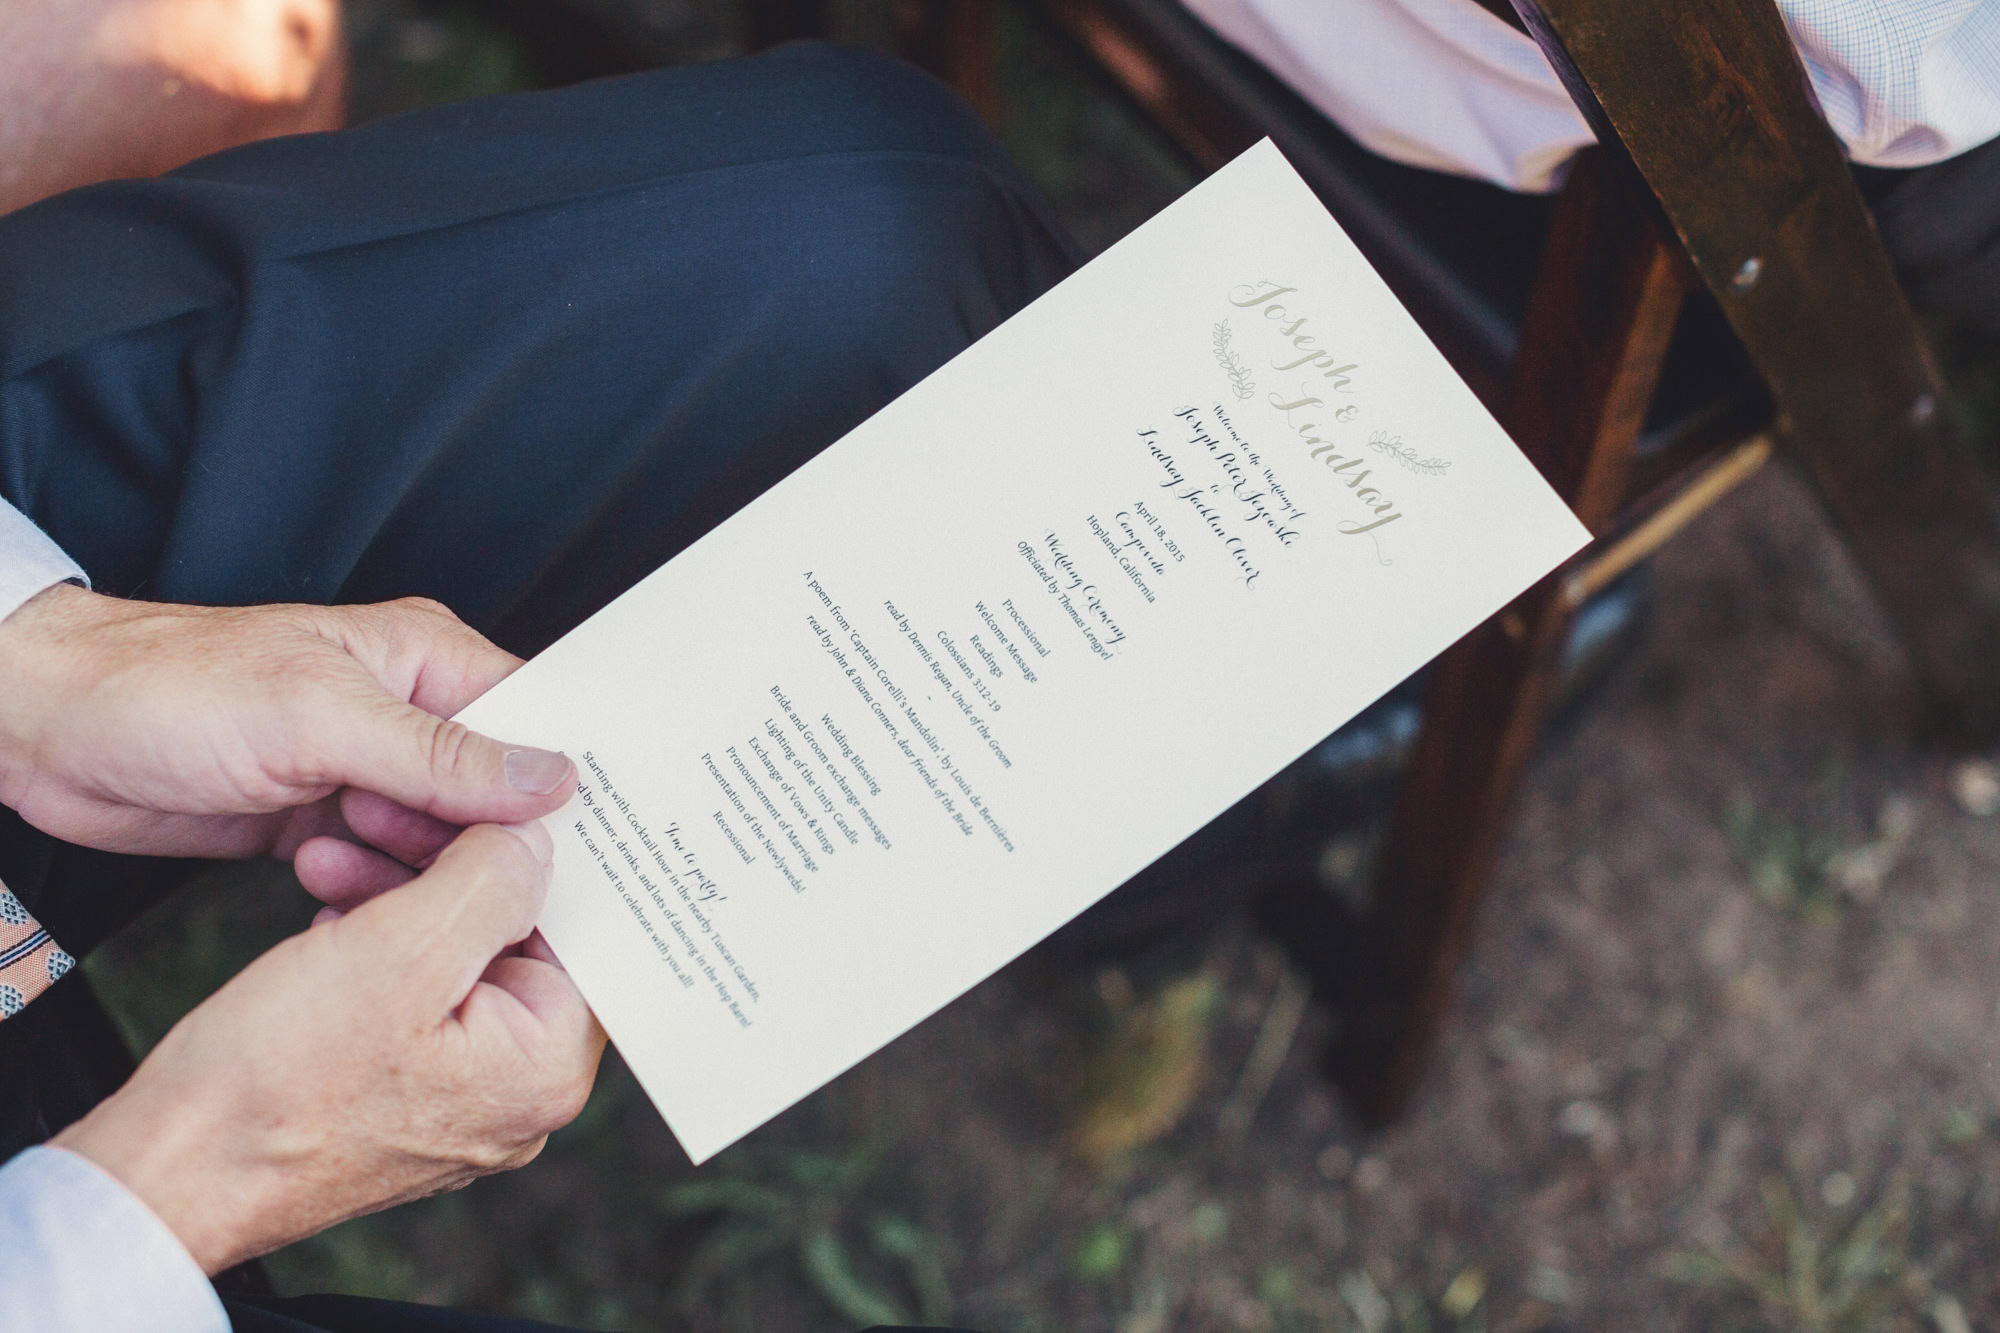 Joseph &
Lindsay
Welcome to the Wedding of
Joseph Peter
to
Lindsay
April 18, 2015
Campovida
Hopland, California
Wedding Ceremony
Officiated by Thomas Lengyel
Processional
Welcome Message
Readings
Colossians 3:12-19
read by Dennis Regan, Uncle of the Groom
-
A poem from 'Captain Corelli's Mandolin', by Louis de Bernières
read by John & Diana Conners, dear friends of the Bride
Wedding Blessing
Bride and Groom exchange messages
Lighting of the Unity Candle
Exchange of Vows & Rings
Pronouncement of Marriage
Presentation of the Newlyweds!
Recessional
Time to party!
Starting with Cocktail Hour in the nearby Tuscan Garden,
ed by dinner, drinks, and lots of dancing in the Hop Barn!
We can't wait to celebrate with you all!